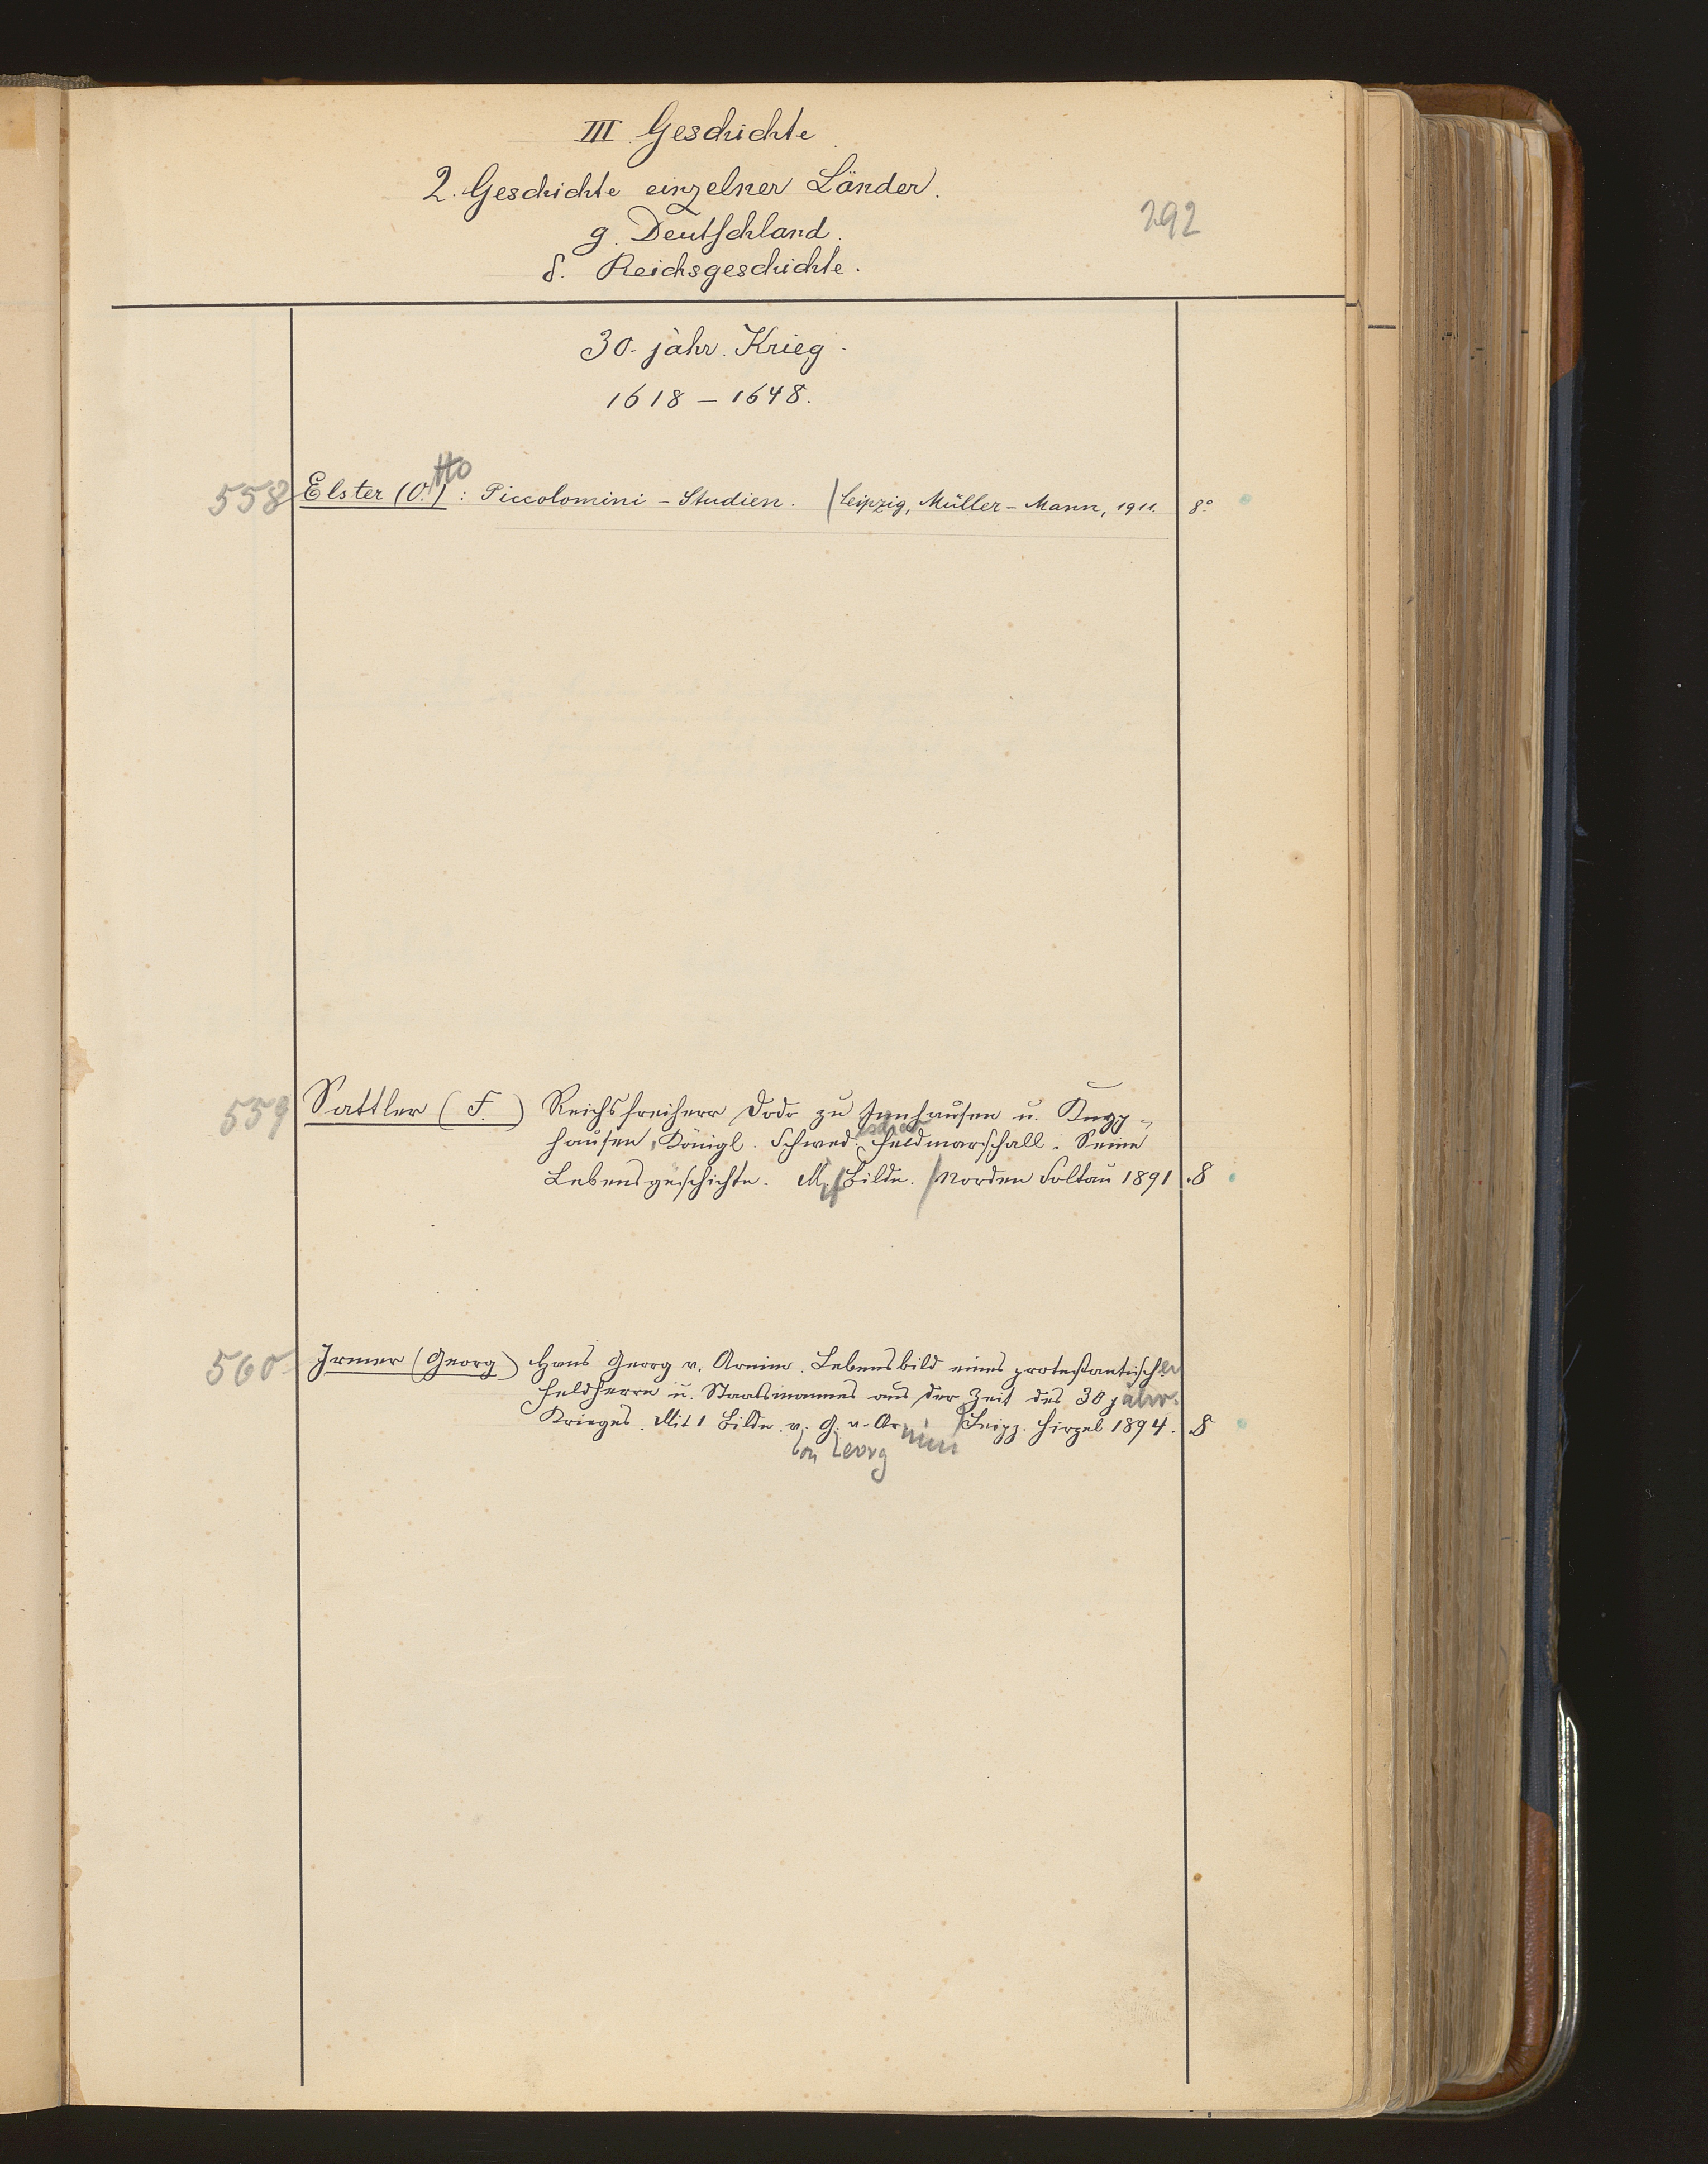 III Geschichte
2. Geschichte einzelner Länder.
292
g. Deutschland.
δ. Reichsgeschichte.
30. jähr. Krieg.
1618 – 1648.
558 Elster (O.tto) : Piccolomini – Studien. / Leipzig, Müller – Mann, 1911. 8°
559 Sattler (F.) Reichsfreiherr Dodo zu Innhausen u. Knyp-
hausen, Königl. Schwedischer Feldmarschall. Seine
Lebensgeschichte. Mit Bilde. / Norden Soltau 1891 .8
560 Irmer (Georg) Hans Georg v. Arnim. Lebensbild eines protestantischen
Feldherrn u. Staatsmannes aus der Zeit des 30 jähr.
Krieges. Mit 1 Bilde. v. G. v. Arnim / Leipz. Hirzel 1894. .8
von Georg